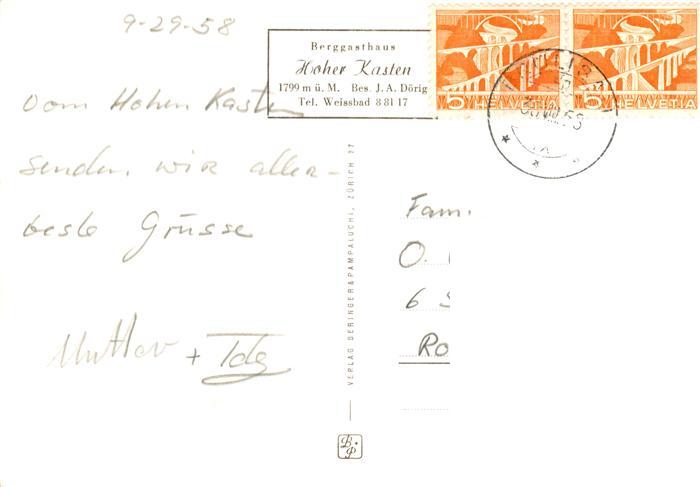 9-29-58
Berggasthaus
Hoher Kasten
1799 m ü. M. Bes. J. A. Dörig
Tel. Weissbad 8 81 17
5 HELVETIA
5 HELVETIA
58
Vom Hohen Kasten
senden wir aller-
beste Grüsse
Mutter + Ida
VERLAG BERINGER & PAMPALUCHI, ZÜRICH 27
Fam.
O.
6 S
Ro
B. P